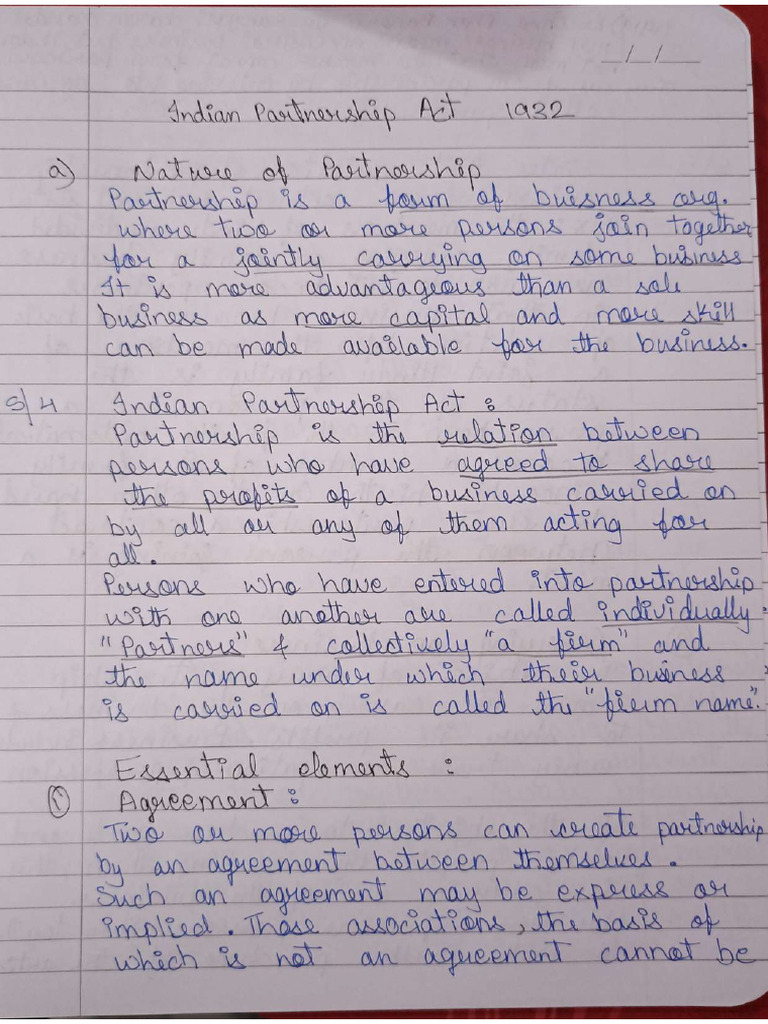 _/_/_
Indian Partnership Act 1932
a) Nature of Partnership
Partnership is a form of buisness org.
where two or more persons join together
for a jointly carrying on some business
It is more advantageous than a sole
business as more capital and more skill
can be made available for the business.
S/4 Indian Partnership Act :
Partnership is the relation between
persons who have agreed to share
the profits of a business carried on
by all or any of them acting for
all.
Persons who have entered into partnership
with one another are called individually
"Partners" & collectively "a firm" and
the name under which their business
is carried on is called the "firm name".
Essential elements :
(i) Agreement :
Two or more persons can create partnership
by an agreement between themselves.
Such an agreement may be express or
implied. Those associations, the basis of
which is not an agreement cannot be